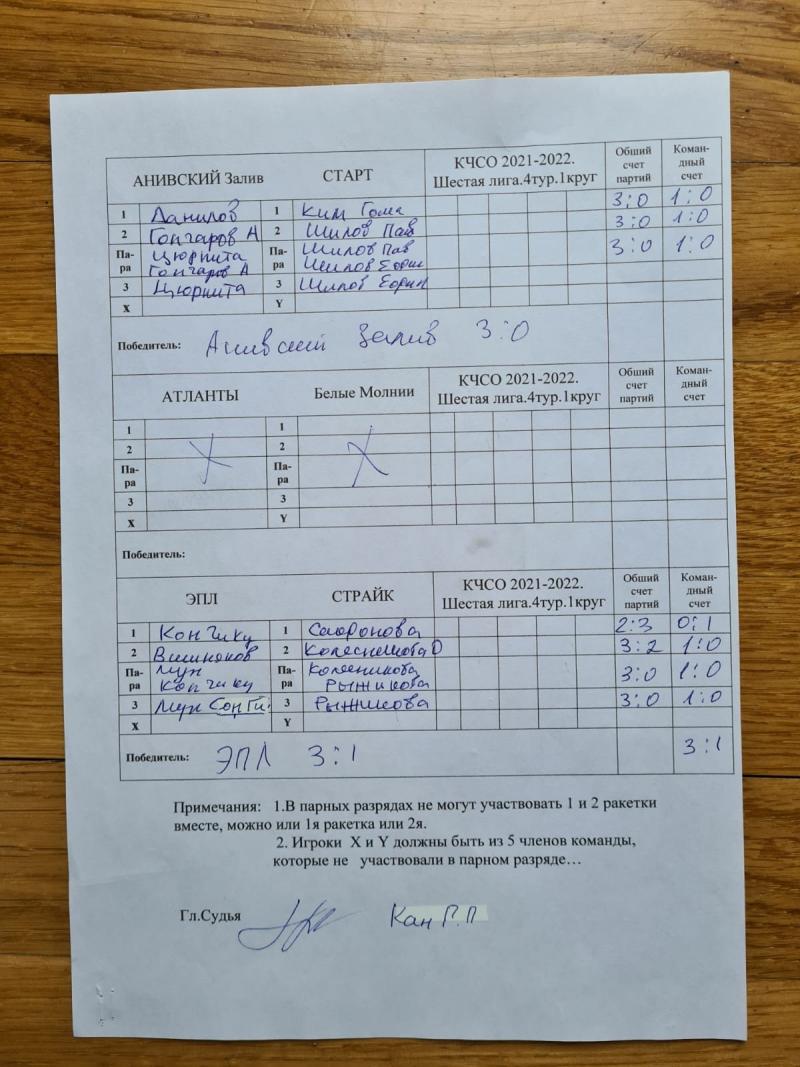 АНИВСКИЙ Залив СТАРТ КЧСО 2021-2022. Шестая лига.4тур.1круг Общий счет партий Коман-дный счет
1 Данилов 1 Ким Гома 3:0 1:0
2 Гончаров А 2 Шилов Пав 3:0 1:0
Па-ра Цюрпита Гончаров А Па-ра Шилов Пав Шилов Борис 3:0 1:0
3 Цюрпита 3 Шилов Борис
X Y
Победитель: Анивский Залив 3:0
АТЛАНТЫ Белые Молнии КЧСО 2021-2022. Шестая лига.4тур.1круг Общий счет партий Коман-дный счет
1 1
2 2
Па-ра Па-ра
3 3
X Y
Победитель:
ЭПЛ СТРАЙК КЧСО 2021-2022. Шестая лига.4тур.1круг Общий счет партий Коман-дный счет
1 Кон Чику 1 Сафронова 2:3 0:1
2 Вишняков 2 Колесникова О 3:2 1:0
Па-ра Мун Кон Чику Па-ра Колесникова Рыжикова 3:0 1:0
3 Мун Сон Ги 3 Рыжикова 3:0 1:0
X Y
Победитель: ЭПЛ 3:1 3:1
Примечания: 1.В парных разрядах не могут участвовать 1 и 2 ракетки
вместе, можно или 1я ракетка или 2я.
2. Игроки X и Y должны быть из 5 членов команды,
которые не участвовали в парном разряде…
Гл.Судья Кан Г.П